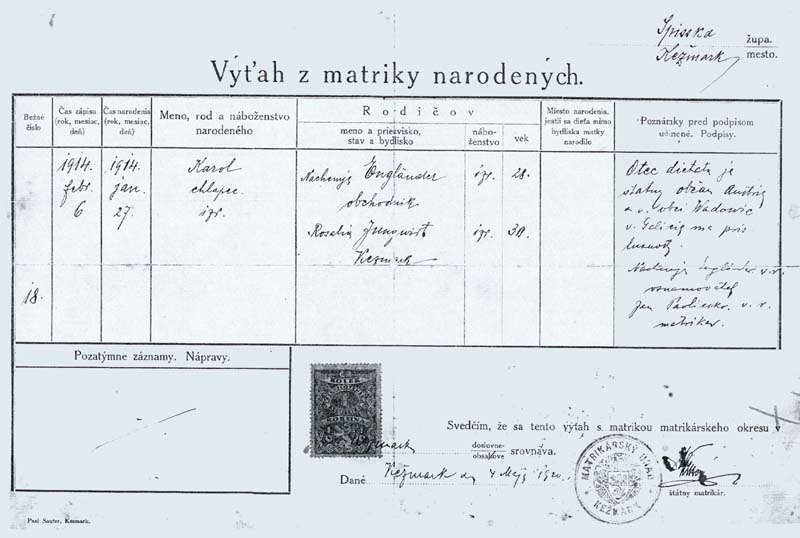 Spisska župa.
Kežmark mesto.
Výťah z matriky narodených.
Bežné číslo
Čas zápisu (rok, mesiac, deň)
Čas narodenia (rok, mesiac, deň)
Meno, rod a náboženstvo narodeného
Rodičov
meno a priezvisko, stav a bydlisko
náboženstvo
vek
Miesto narodenia, jestli sa dieťa mimo bydliska matky narodilo
Poznámky pred podpisom učinené. Podpisy.
18.
1914 febr. 6
1914 jan. 27
Karol
chlapec
izr.
Engländer
obchodník
izr. 28.
Rosalia Jungwirt izr. 30.
Kežmark
Otec dieťaťa je
štátny občan Austrie
a v obci Wadowic
v Galicii má
Engländer v. r.
oznamovateľ
Jan v. r.
matrikár.
Pozatýmne záznamy. Nápravy.
KOLEK
Svedčím, že sa tento výťah s matrikou matrikárskeho okresu v
Kežmark doslovne-obsahove srovnáva.
Dané Kežmark 4 1920.
MATRIKÁRSKY ÚRAD
KEŽMARK
štátny matrikár.
Paul Sauter, Kesmark.